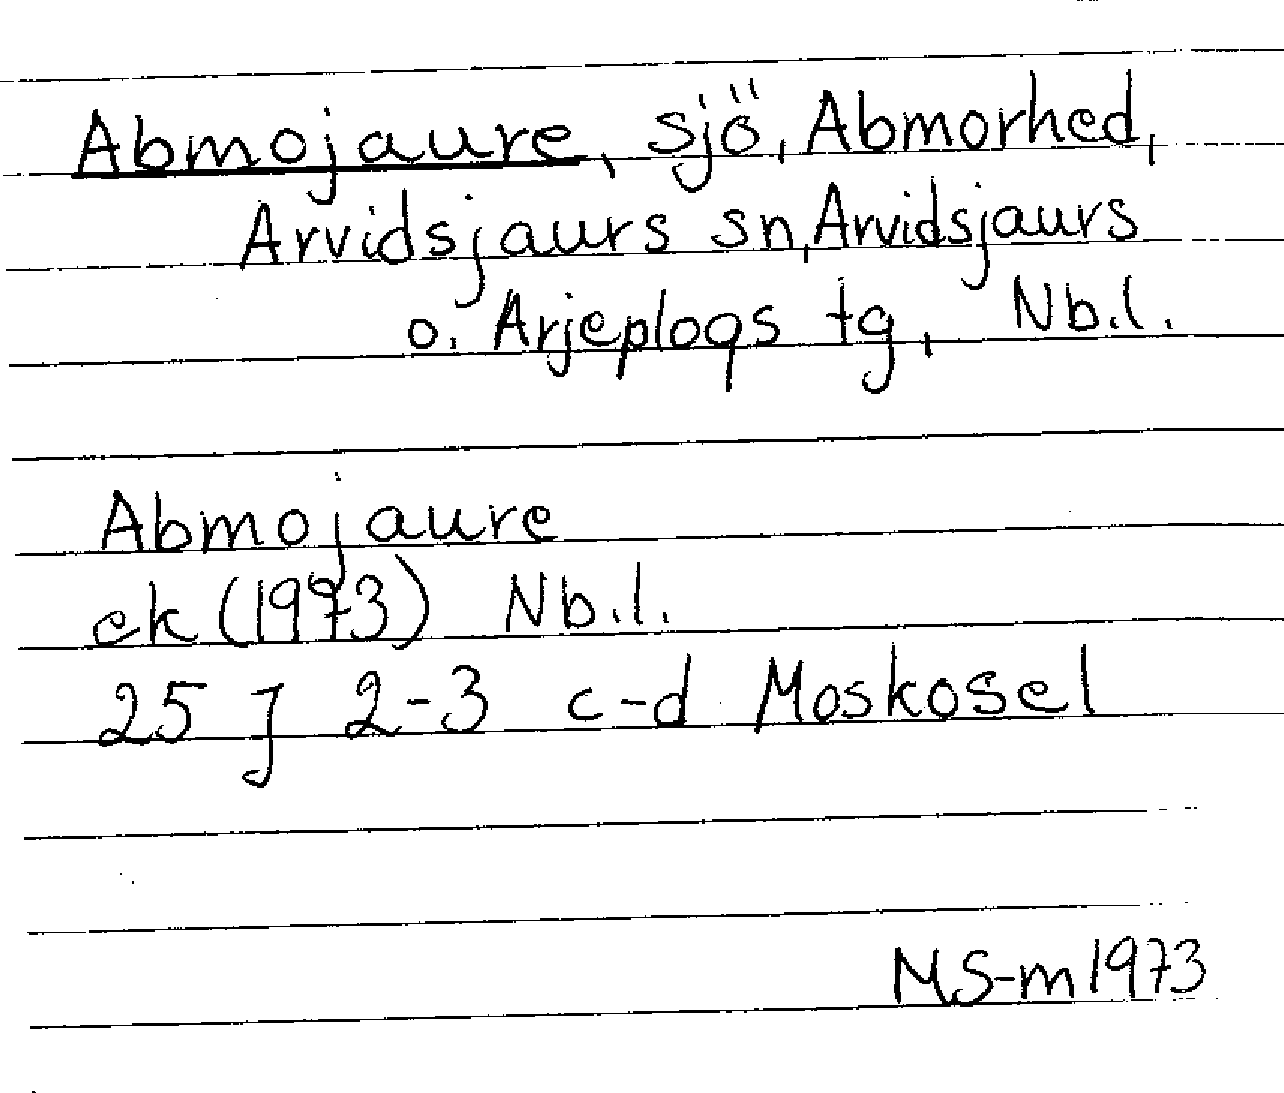 Abmojaure, sjö, Abmorhed,
Arvidsjaurs sn, Arvidsjaurs
o. Arjeplogs tg, Nb.l.
Abmojaure
ek (1973) Nb.l.
25 J 2-3 c-d Moskosel
MS-m 1973